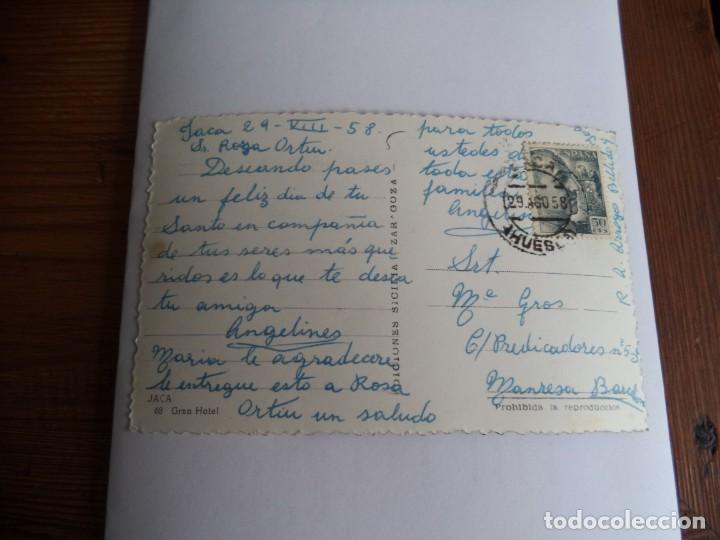 Jaca 29-VIII-58.
Sr. Rosa Ortiu.
Deseando pases
un feliz dia de tu
Santo en compañia
de tus seres más que
ridos es lo que te desea
tu amiga
Angelines
Maria le agradecere
le entregue esto a Rosa
Ortiu un saludo
JACA
68 Gran Hotel
EDICIONES SICILIA (ZARAGOZA)
para todos
ustedes de
toda esta
familia
Angelines
29 AGO 58
HUESCA
50
CTS
Srt.
Mª Gros
C/ Predicadores nº 5-3
Manresa Barcelona
Prohibida la reproducción
R. A. Arroyo
todocoleccion.net